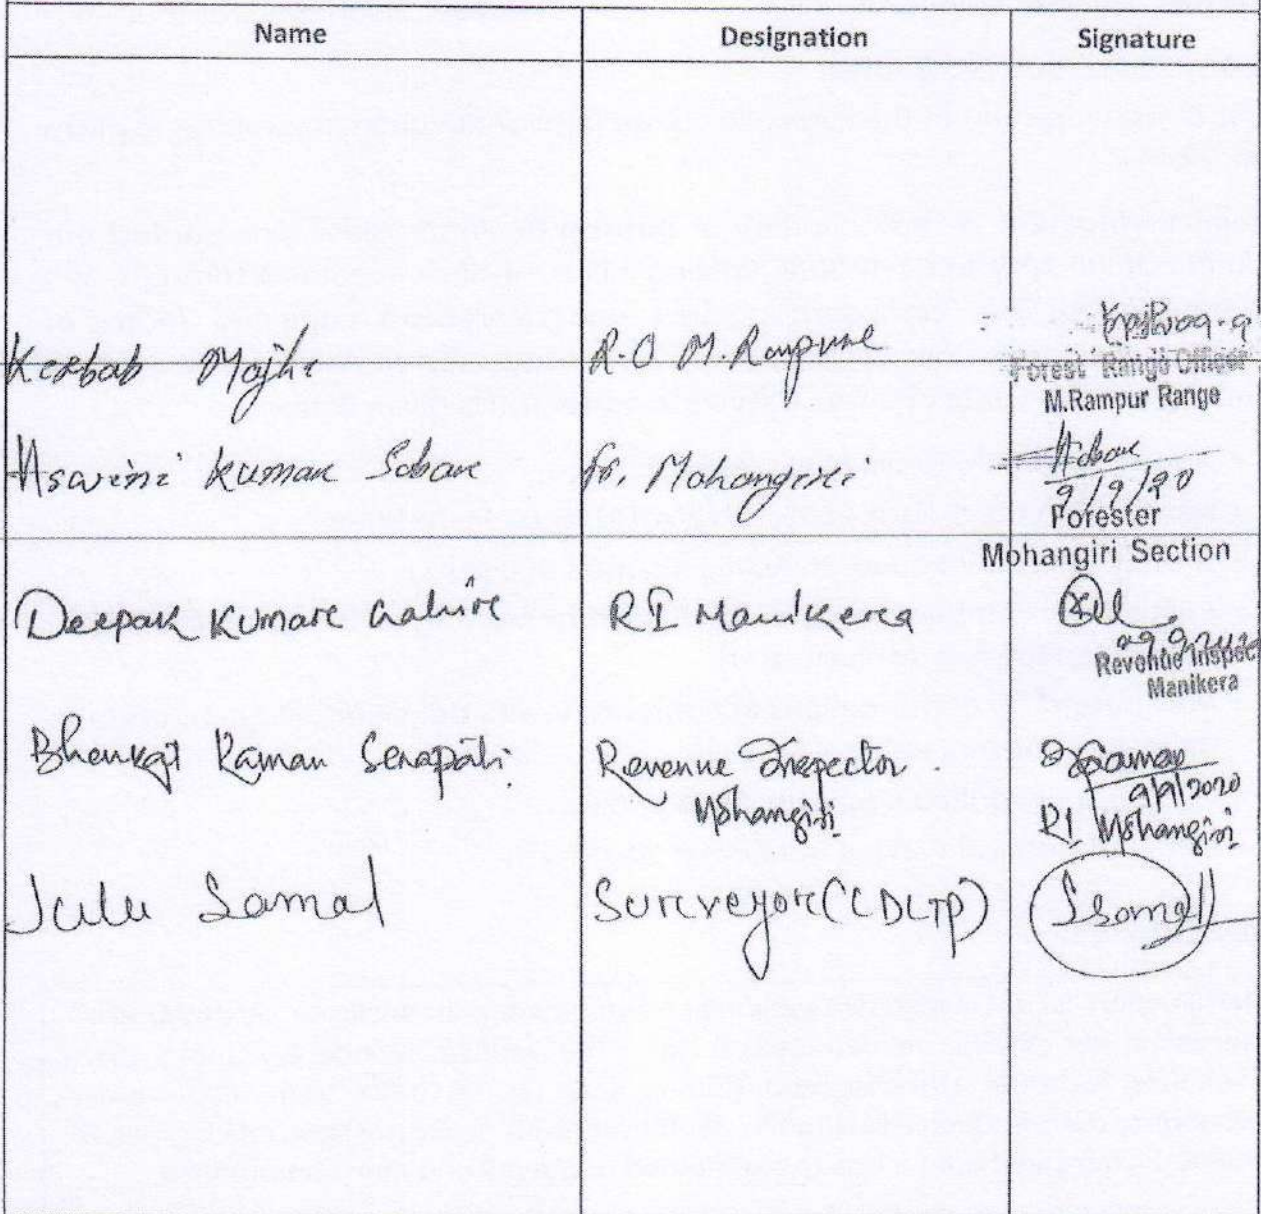 Name Designation Signature
Kerbab Majhi R.O M. Rampur
Forest Range Officer
M.Rampur Range
Aswini Kumar Saban Fr. Mohangiri
9/9/20
Forester
Mohangiri Section
Deepak Kumare RI Manikera
Revenue Inspec
Manikera
Bhenkat Raman Senapati Revenue Inspector.
Mohangiri
9/9/2020
RI Mohangiri
Julu Samal Surveyor (CDLTP) Jsamal